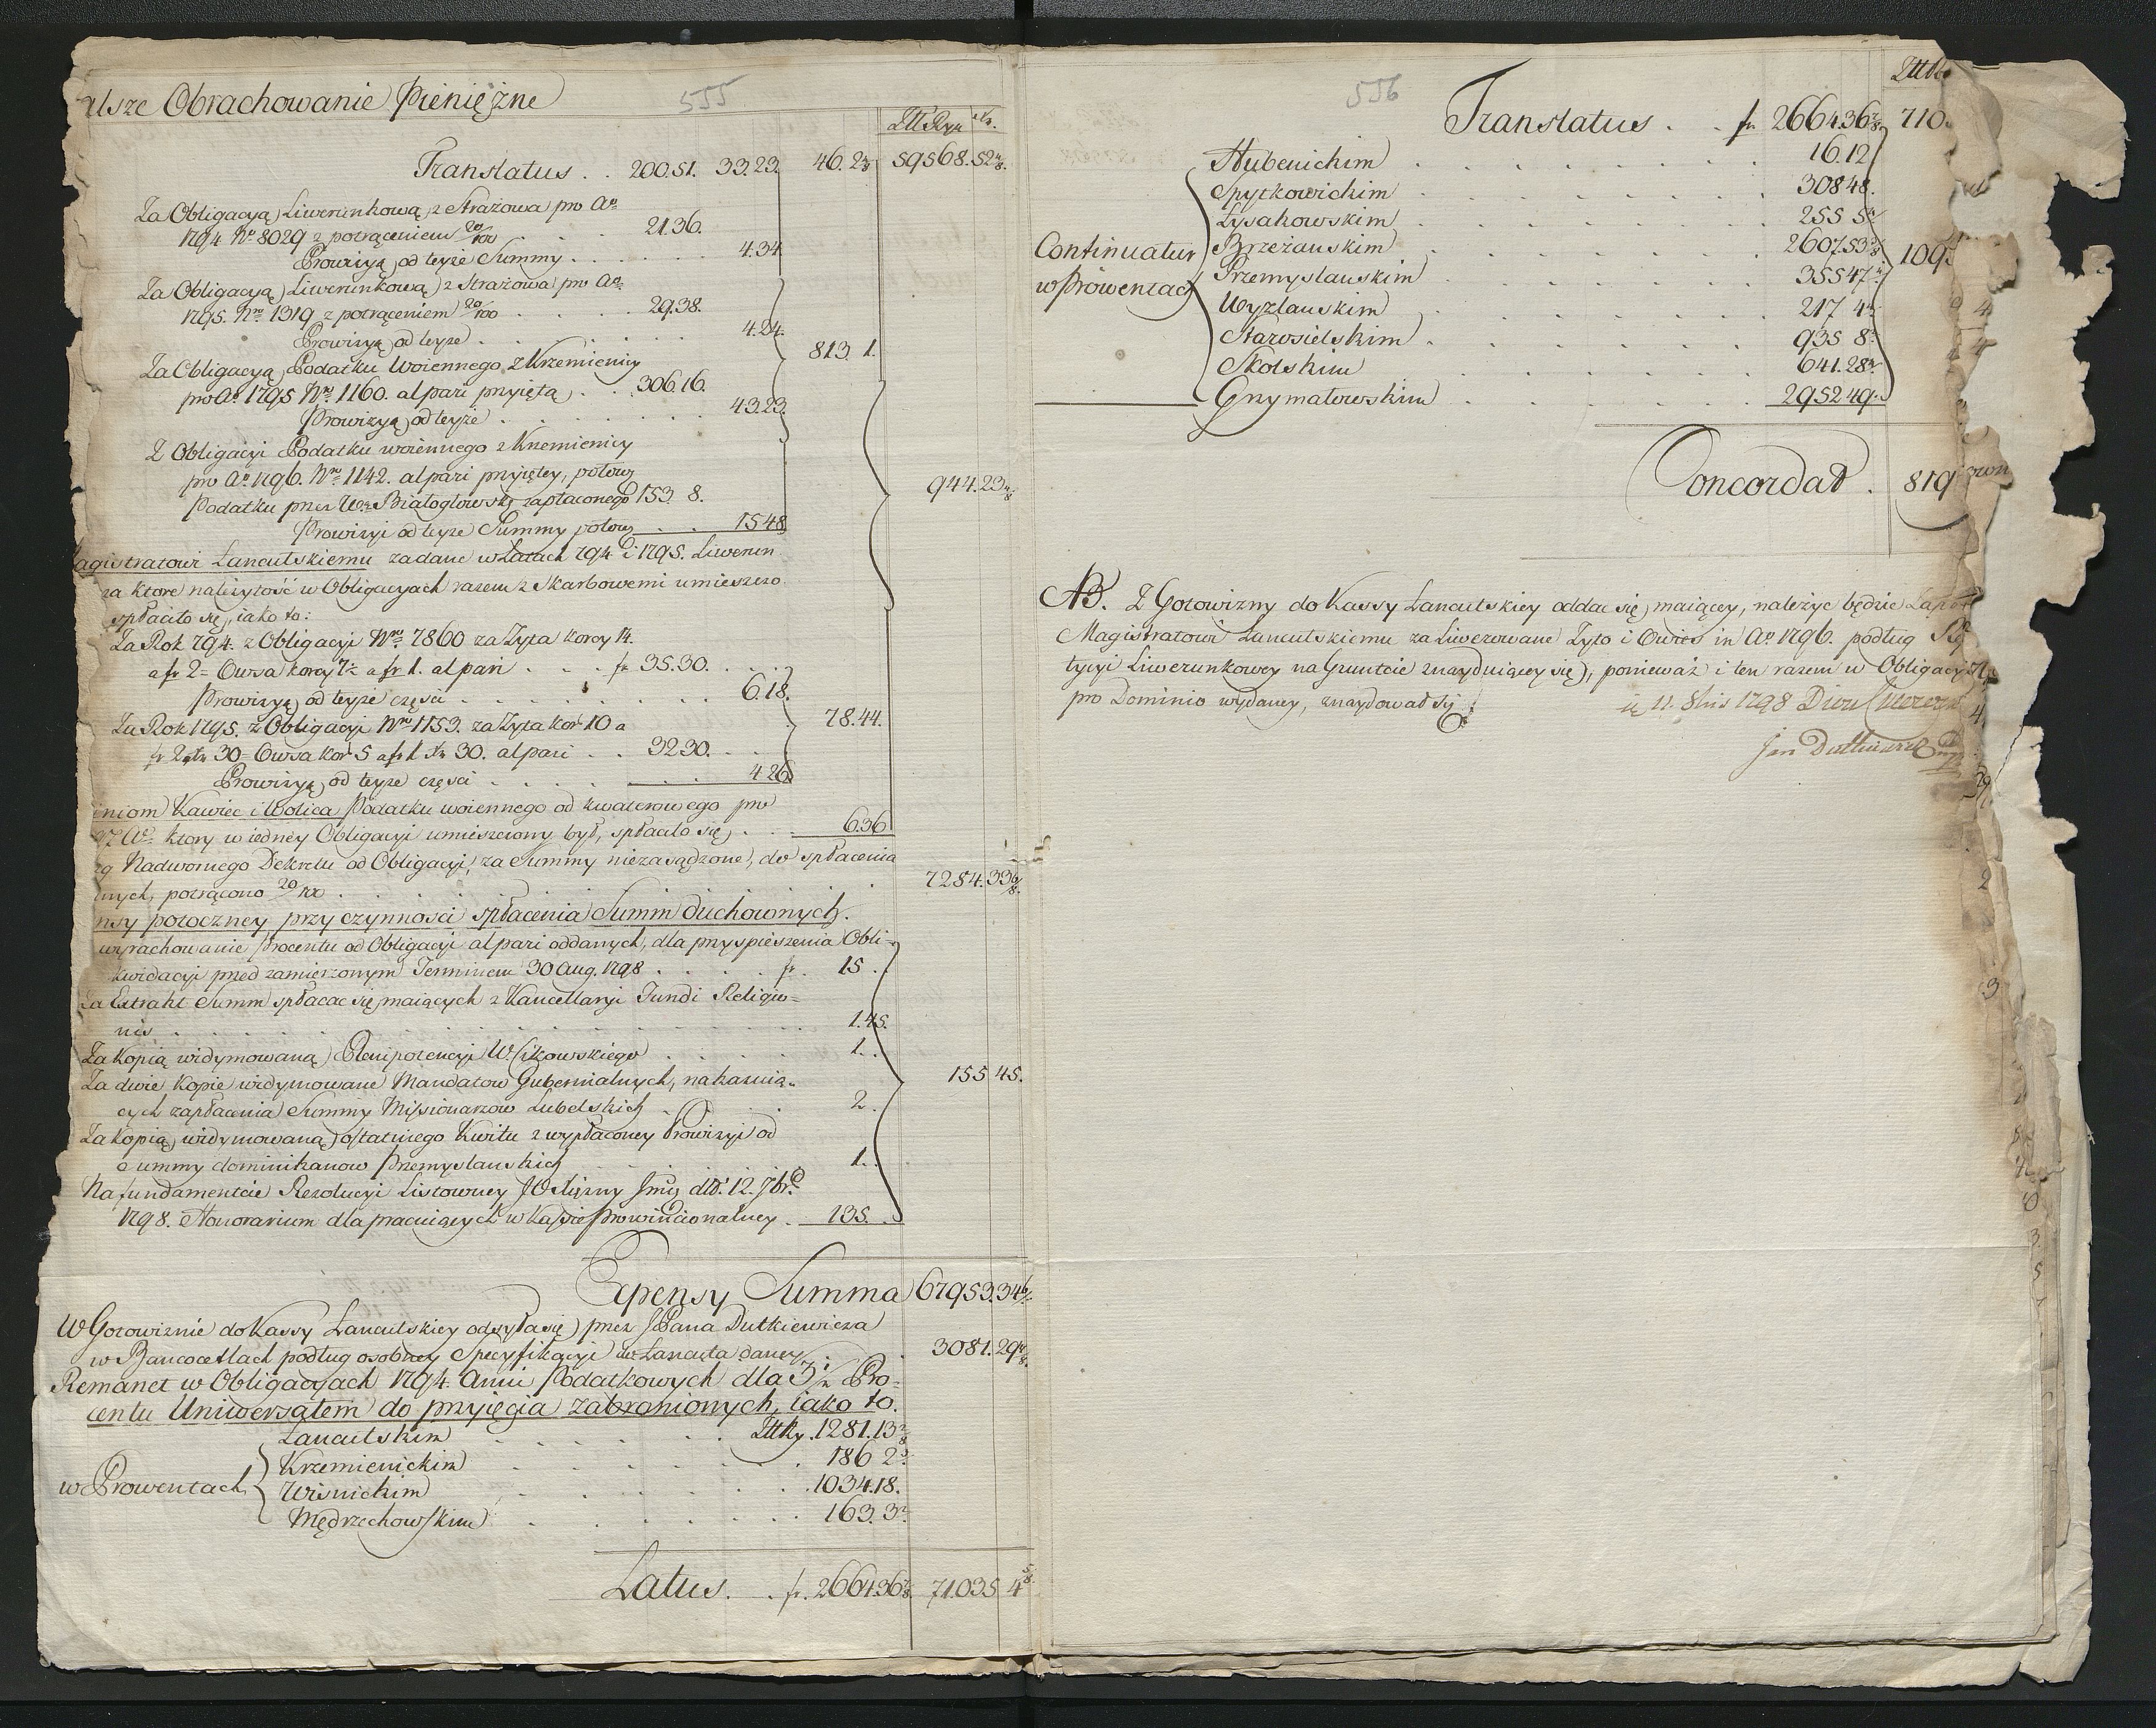 alsze Obrachowanie Pieniężne
555
ZłtRyn Xr.
Translatus . . 200.51. 33.23. 46.2 4/8 59568.52 4/8.
Za Obligacyą Liwerunkową z Strażowa pro Ao
1794 Nro 8029 z potrąceniem 20/100 . . . . 21.36.
Prowizyą od teyże Summy . . . . . . 4.34.
Za Obligacyą Liwerunkową z Strażowa pro Ao
1795. Nro 1319 z potrąceniem 20/100 . . . . 29.38.
Prowizyą od teyże . . . . . . 4.24.
813. 1.
Za Obligacyą Podatku Woiennego z Krzemienicy
pro Ao 1795 Nro 1160. alpari przyiętą . . 306.16.
Prowizyą od teyże . . . . . . 43.23.
Z Obligacyi Podatku woiennego z Krzemienicy
pro Ao 1796. Nro 1142. alpari przyiętey, połowę
944.23
Podatku przez Białogłowskę zapłaconego 153. 8.
Prowizyi od teyże Summy połowę . . 15.48.
agistratowi Łancutskiemu zadane w Latach 794 i 1795. Liwerun
za ktore należytość w Obligacyach razem z Skarbowemi umieszczo
spłaciło się, iako to:
Za Rok 794. z Obligacyi Nro 7860 za Zyta korcy 14.
a fr 2 = Owsa korcy 7 a fr 1. alpari . . . fr 35.30.
Prowizyą od teyże części . . . . . . 6.18.
78.44.
Za Rok 1795. z Obligacyi Nro 1153. za Zyta kor 10 a
fr 2 Xr 30 = Owsa kor 5 a fr 1 Xr 30. alpari . . 32.30.
Prowizyą od teyże części . . . . . . 4.26.
eniom Kawiec i Wolica Podatku woiennego od kwaterowego pro
ktory w iedney Obligacyi umieszczony był, spłaciło się . . 6.36
Nadwornego Dekretu od Obligacyi, za Summy niezasądzone, do spłacenia
nych, potrącono 20/100 . . . . . . 7284.33 6/8.
nsy potoczney przy czynności spłacenia Summ duchownych.
wyrachowanie Procentu od Obligacyi alpari oddanych, dla przyspieszenia Obli=
kwidacyi przed zamierzonym Terminem 30 Aug. 1798 . . . . fr. 15 .
Za Extrakt Summ spłacac się maiących z Kancellaryi Fundi Religio=
nis . . . . . . 1.45.
Za kopią widymowaną Plenipotencyi W. Cikowskiego . . . . 1. .
Za dwie kopie widymowane Mandatow Gubernialnych, nakazuią=
155 45.
cych zapłacenia Summy Missionarzow Lubelskich . . . . 2 .
Za kopią widymowaną ostatniego Kwitu z wypłaconey Prowizyi od
Summy dominikanow Przemyslanskich . . . . 1. .
Na fundamentcie Rezolucyi Listowney JO Xiężny Jmci dtto 12. 7bris
1798. Honorarium dla pracuiących w Kassie Prowincionalney . 135. .
Expensy Summa 67953.34 6/8
W Gotowiznie do Kassy Łancutskiey odsyła się przez JPana Dutkiewicza
w Bancocetlach podług osobney Specyfikacyi do Łancuta daney . 3081.29
Remanet w Obligacyach 1794. Anni Podatkowych dla 3 1/2 Pro=
centu Uniwersałem do przyięcia zabronionych, iako to.
Łancutskim . . . . ZłtRy. 1281.13
w Prowentach Krzemienickim . . . . 186 2
Wisnickim . . . . 1034.18.
Mędrzechowskim . . . . 163. 3
Latus . . fr. 2664.36 7/8. 71.035 4 5/8
556
ZłtR
Translatus . . fr 2664.36 7/8 710
Hubenickim . . . . 16.12
Spytkowickim . . . . 308 48.
Łysakowskim . . . . 255 5
Continuatur Brzeżanskim . . . . 2607.53 109
w Prowentach Przemyslanskim . . . . 355 47
Wyzlanskim . . . . 217 4
Starosielskim . . . . 935 8
Skolskim . . . . 641.28
Grzymałowskim . . . . 2952 49.
Concordat . 819
NB. Z Gotowizny do Kassy Łancutskiey oddac się maiącey, należyc będzie
Magistratowi Łancutskiemu za Liwerowane Zyto i Owies in Ao 1796. podług
tycyi Liwerunkowey na Gruntcie znayduiącey się, ponieważ i ten razem w Obligacyi
pro Dominio wydaney, znaydował się.
11. 8bris 1798
Jan Dutkiewicz